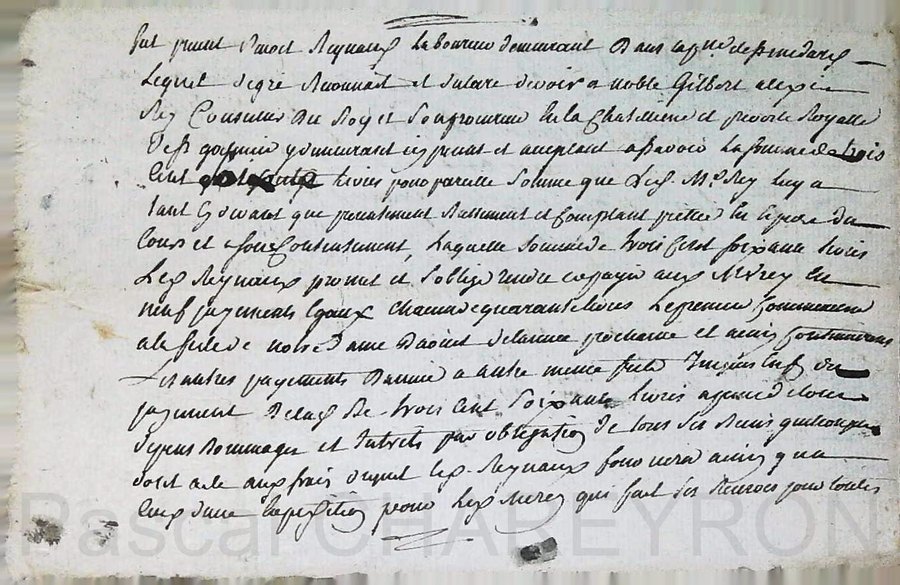 fut present Benoet Reynaux Laboureur demeurant Dans la
Lequel de gré Reconnait et declare devoir a noble Gilbert alexis
Rey Conseiller Du Roy et Son procureur En la Chatellenie et prevoté Royalle
y demeurant icy present et acceptant a Scavoir La Somme de trois
Cent Livres pour pareille Somme que Led. Mr Rey luy a
tant Cy devant que presentement Reellement et Comptant pretté En Especes du
Cours et a Son Contentement, Laquelle Somme de trois Cent soixante Livres
Led. Reynaux promet et S'oblige rendre et payer aud. Sr Rey En
neuf payements Egaux Chacun de quarante Livres Le premier Commencera
a la feste de notre Dame D'aoust de Lannée prochaine et ainsi Continuera
Les autres payements D'année a autre meme feste Jusques En fin de
payement De lad. Se. trois Cent Soixante Livres a peine de tous
depens Dommages et Interets par obligation De tous Ses Biens quelconques
aux frais duquel led. Reynaux fournira ainsi qu'a
Dune Expedition pour Led. Sr Rey qui fait Ses Reserves pour toutes
Pascal CHAREYRON